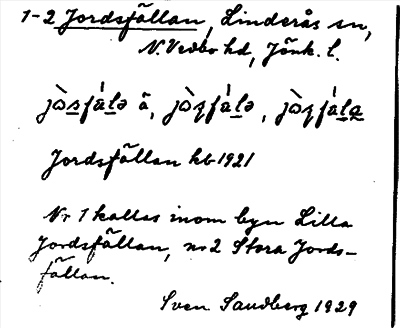 1-2 Jordsfällan, Linderås sn,
N. Vedbo hd, Jönk. l.
jòsfálə å, jòʂfálə, jòʂfála
Jordsfällan kb 1921
Nr 1 kallas inom byn Lilla
Jordsfällan, nr 2 Stora Jords-
fällan.
Sven Sandberg 1929